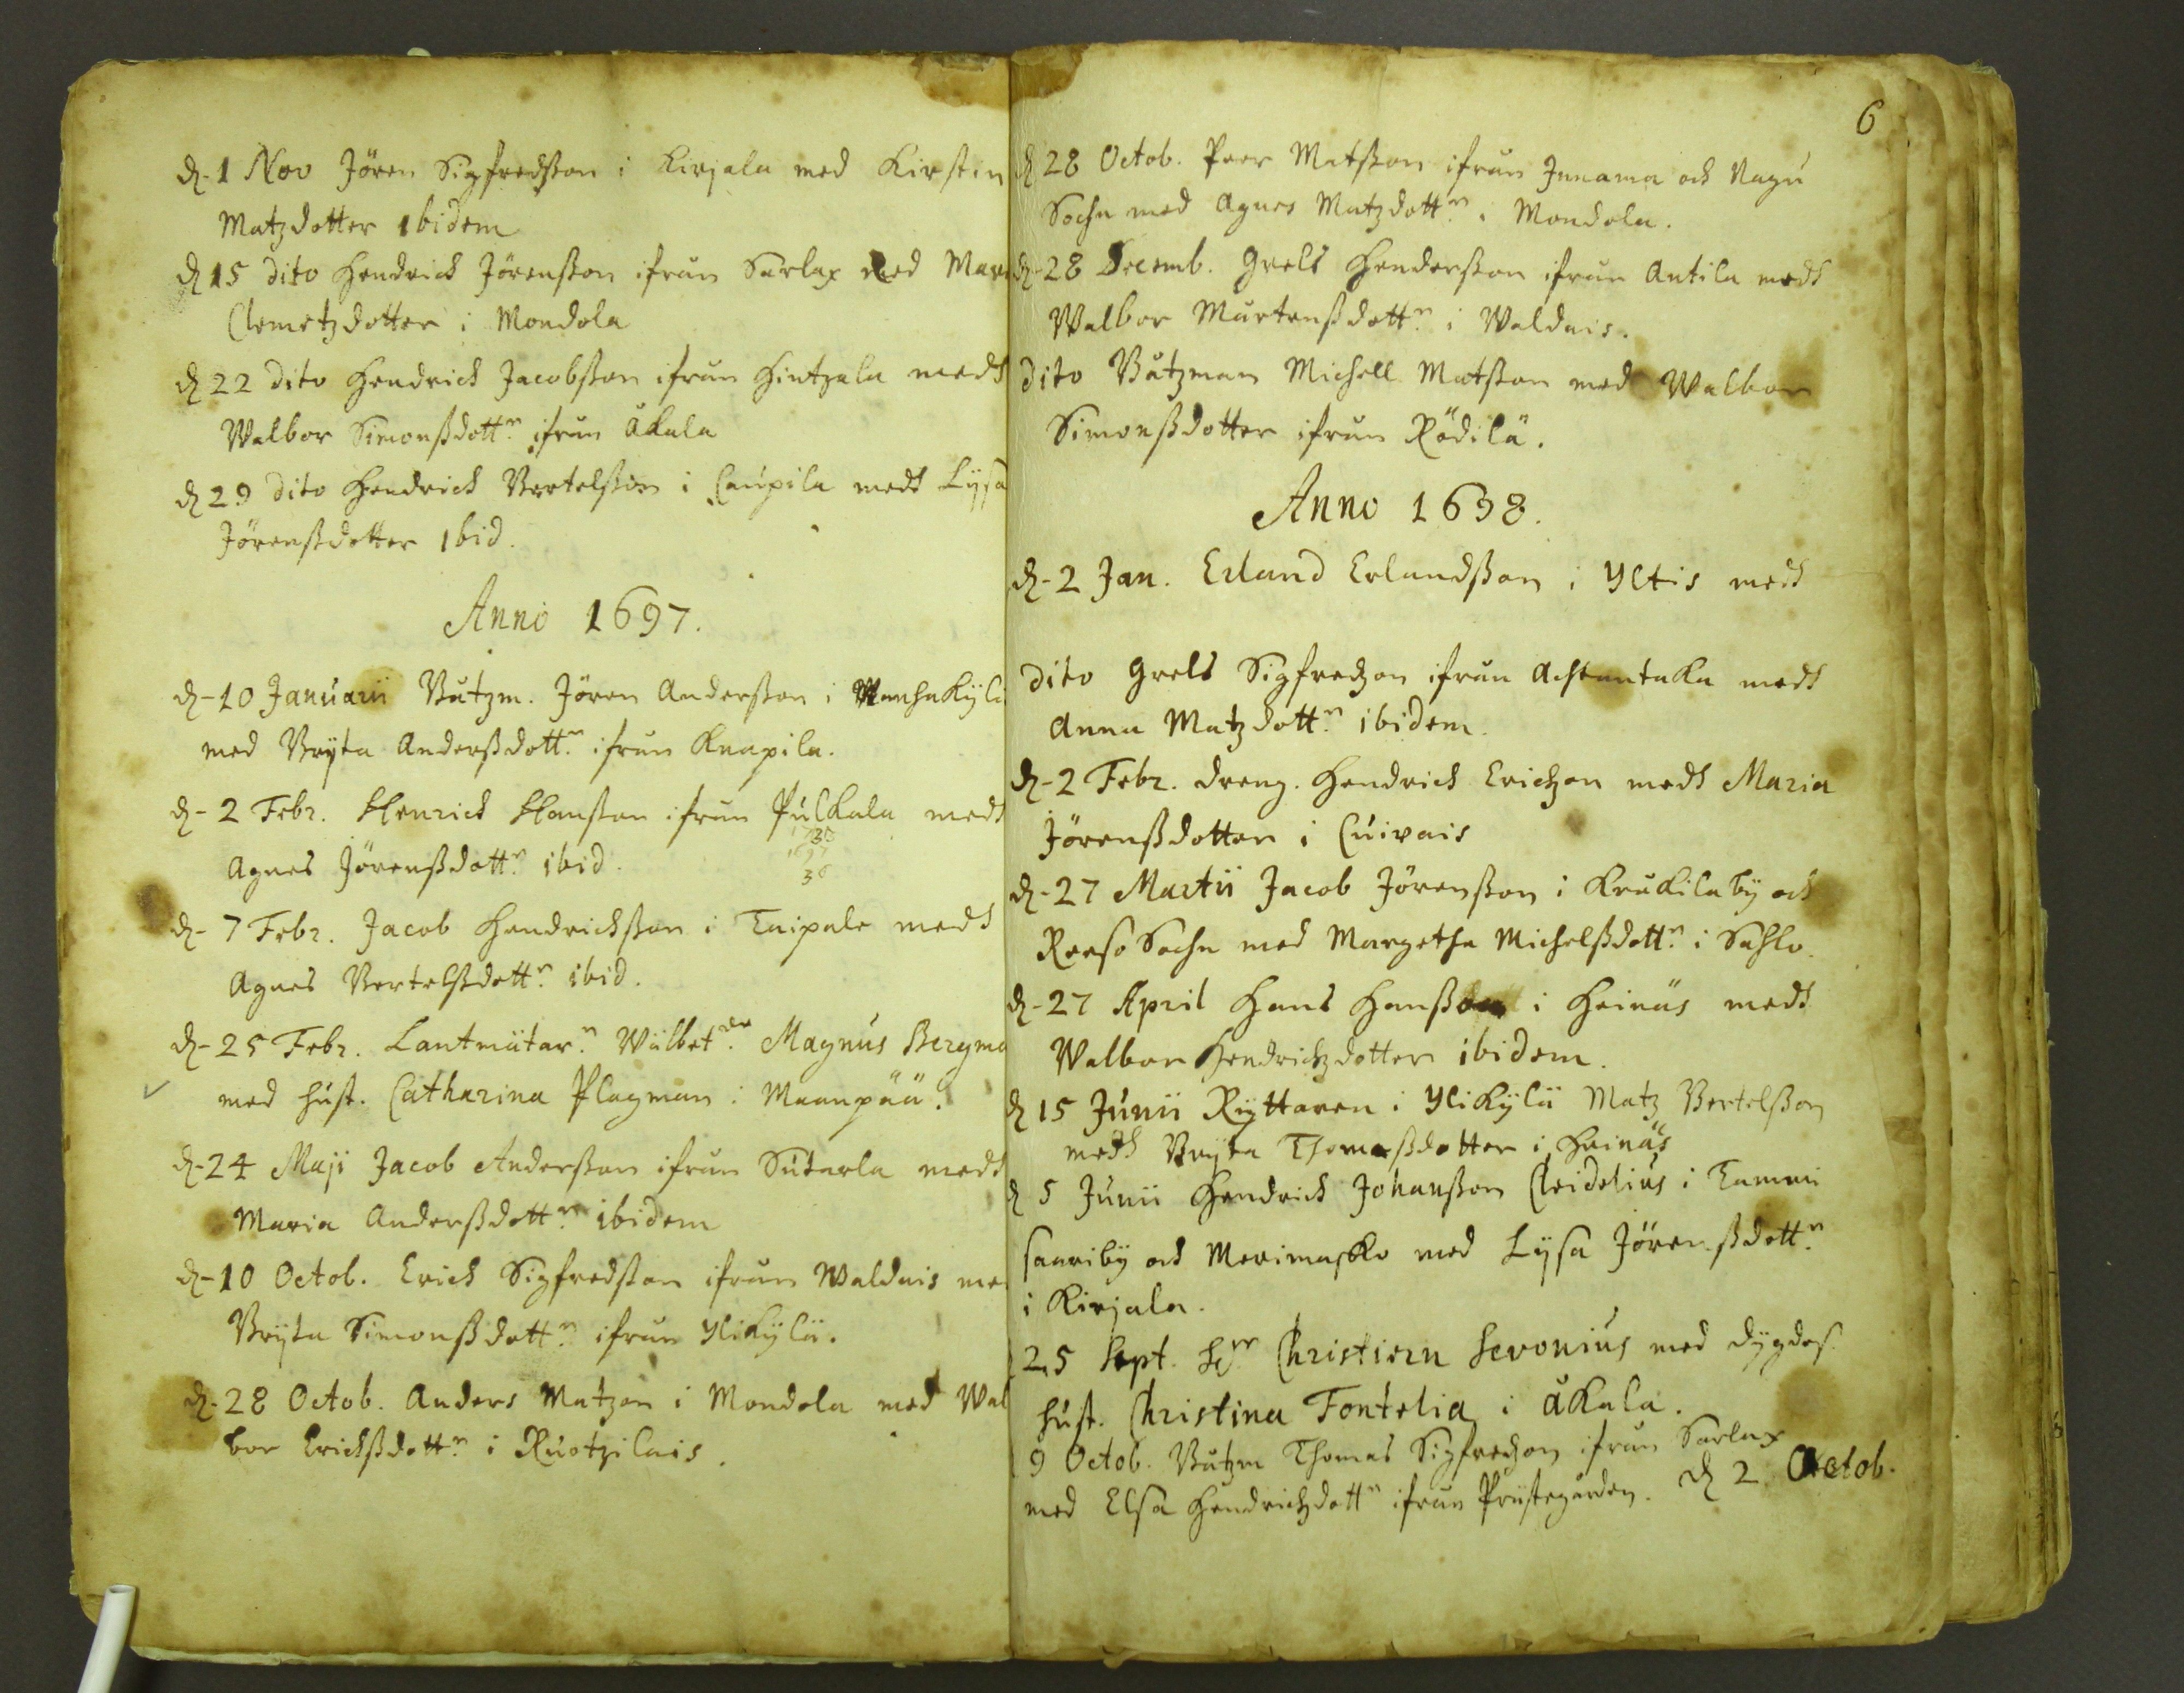 d. 1 Nov Jören Sigfredßon i Kirjala med Kirstin
Matzdotter ibidem
d 15 dito Hendrick Jörenßon ifrån Sarlax med Mar
Clemetzdotter i Mondola
d 22 dito Hendrick Jacobßon ifrån Hintzala medh
Walbor Simonßdottr ifrån Åkala
d 29 dito Hendrick Bertelßon i Caupila medh Lysa
Jörenßdotter ibid.
Anno 1697.
d-10 Januarii Båtzm. Jören Anderßon i Wanhakylä
med Bryta Anderßdottr ifrån Knapila.
d-2 Febr. Henrick Hanßon ifrån Pulkala medh
Agnes Jörenßdottr ibid.
d-7 Febr. Jacob Hendrickßon i Taipale medh
Agnes Bertelßdottr ibid.
d-25 Febr. Lantmätarn Wälbetde Magnus Bergma
med hust. Catharina Plagman i Maanpää.
d-24 Maji Jacob Anderßon ifrån Sutarla medh
Maria Anderßdottr ibidem
d-10 Octob. Erich Sigfredßon ifrån Waldais me
Bryta Simonßdottr ifrån Ylikylä.
d-28 Octob. Anders Matzon i Mondola med Wal
bor Erichßdottr i Ruotzilais.
6
d 28 Octob. Peer Matßon ifrån Innama och Nagu
Sochn med Agnes Matzdottr i Mondola.
d-28 Decemb. Grels Henderßon ifrån Antila medh
Walbor Mårtenßdottr i Waldais.
dito Båtzman Michell Matßon med Walbor
Simonßdotter ifrån Rödilä.
Anno 1698.
d-2 Jan. Erland Erlandßon i Yltis medh
dito Grels Sigfredzon ifrån Achtantaka medh
Anna Matzdottr ibidem.
d-2 Febr. dreng. Hendrich Erichzon medh Maria
Jörenßdotter i Cuivais
d-27 Martii Jacob Jörenßon i Krukilaby och
Reeso Sochn med Margetha Michelßdottr i Sahlo.
d-27 April Hans Hanßon i Heinäs medh
Walbor Hendrichzdotter ibidem.
d 15 Junii Ryttaren i Ylikylä Matz Bertelßon
medh Bryta Thomaßdotter i Heinäs
d 5 Junii Hendrich Johanßon Cleidelius i Tammi
saariby och Merimasko med Lysa Jörenßdottr
i Kirjala.
25 Sept. Hr Christiern Sevonius med dygdes.
hust. Christina Fontelia i Åkala.
9 Octob. Båtzm Thomas Sigfredzon ifrån Sarlax
med Elsa Hendrichzdottr ifrån Prästegården. d 2 Octob.